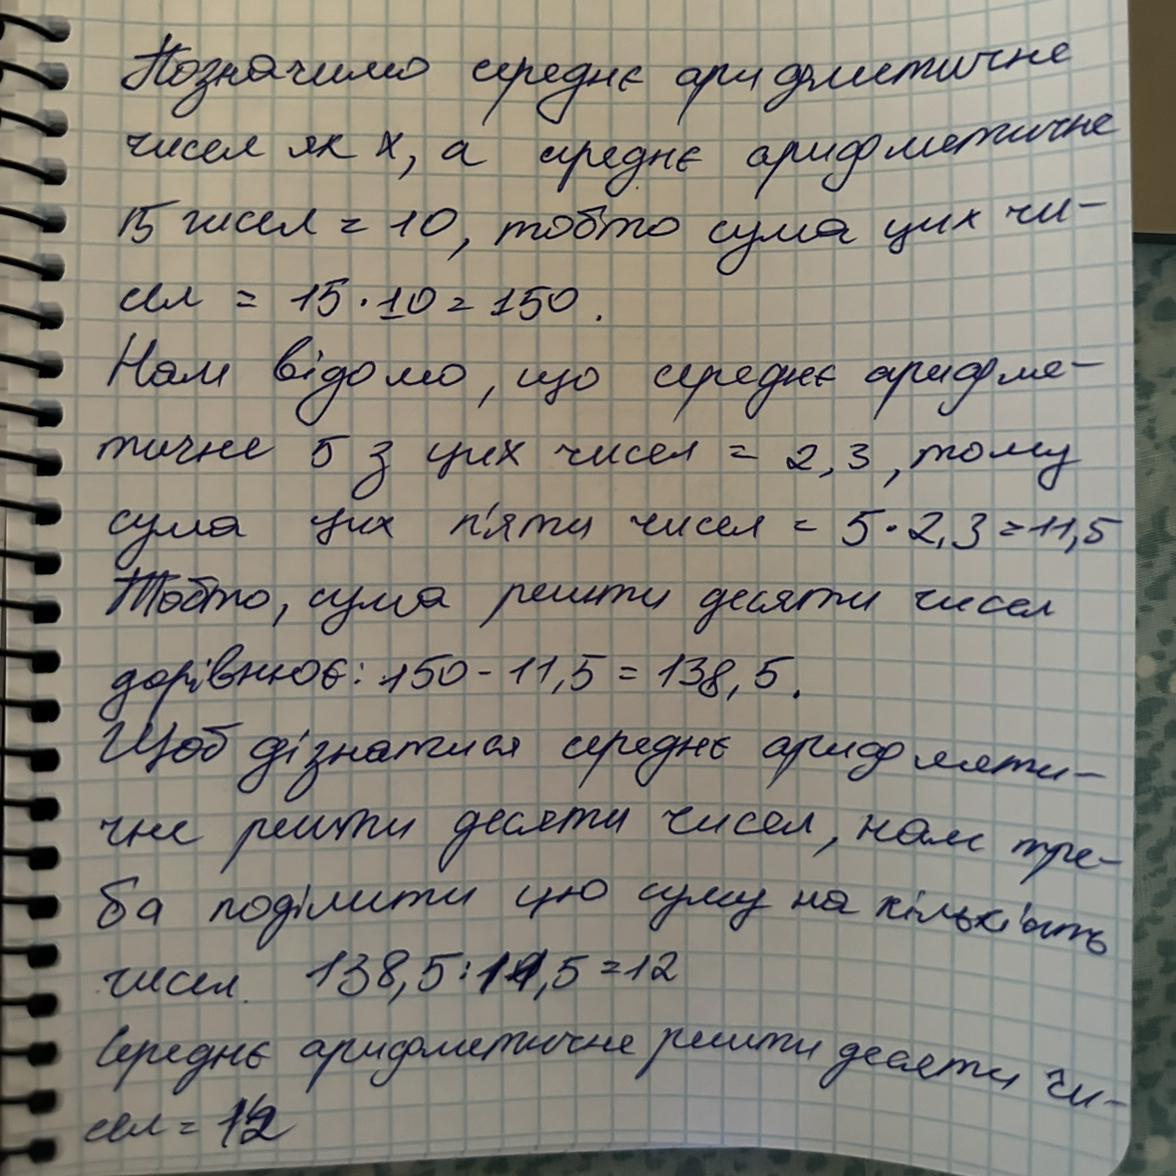 Позначимо середнє арифметичне
чисел як х, а середнє арифметичне
15 чисел = 10, тобто сума цих чи-
сел = 15·10=150.
Нам відомо, що середнє арифме-
тичне 5 з цих чисел = 2,3, тому
сума цих п'яти чисел = 5·2,3=11,5
Тобто, сума решти десяти чисел
дорівнює: 150-11,5=138,5.
Щоб дізнатися середнє арифмети-
чне решти десяти чисел, нам тре-
ба поділити цю суму на кількість
чисел. 138,5:11,5=12
Середнє арифметичне решти десяти чи-
сел = 12